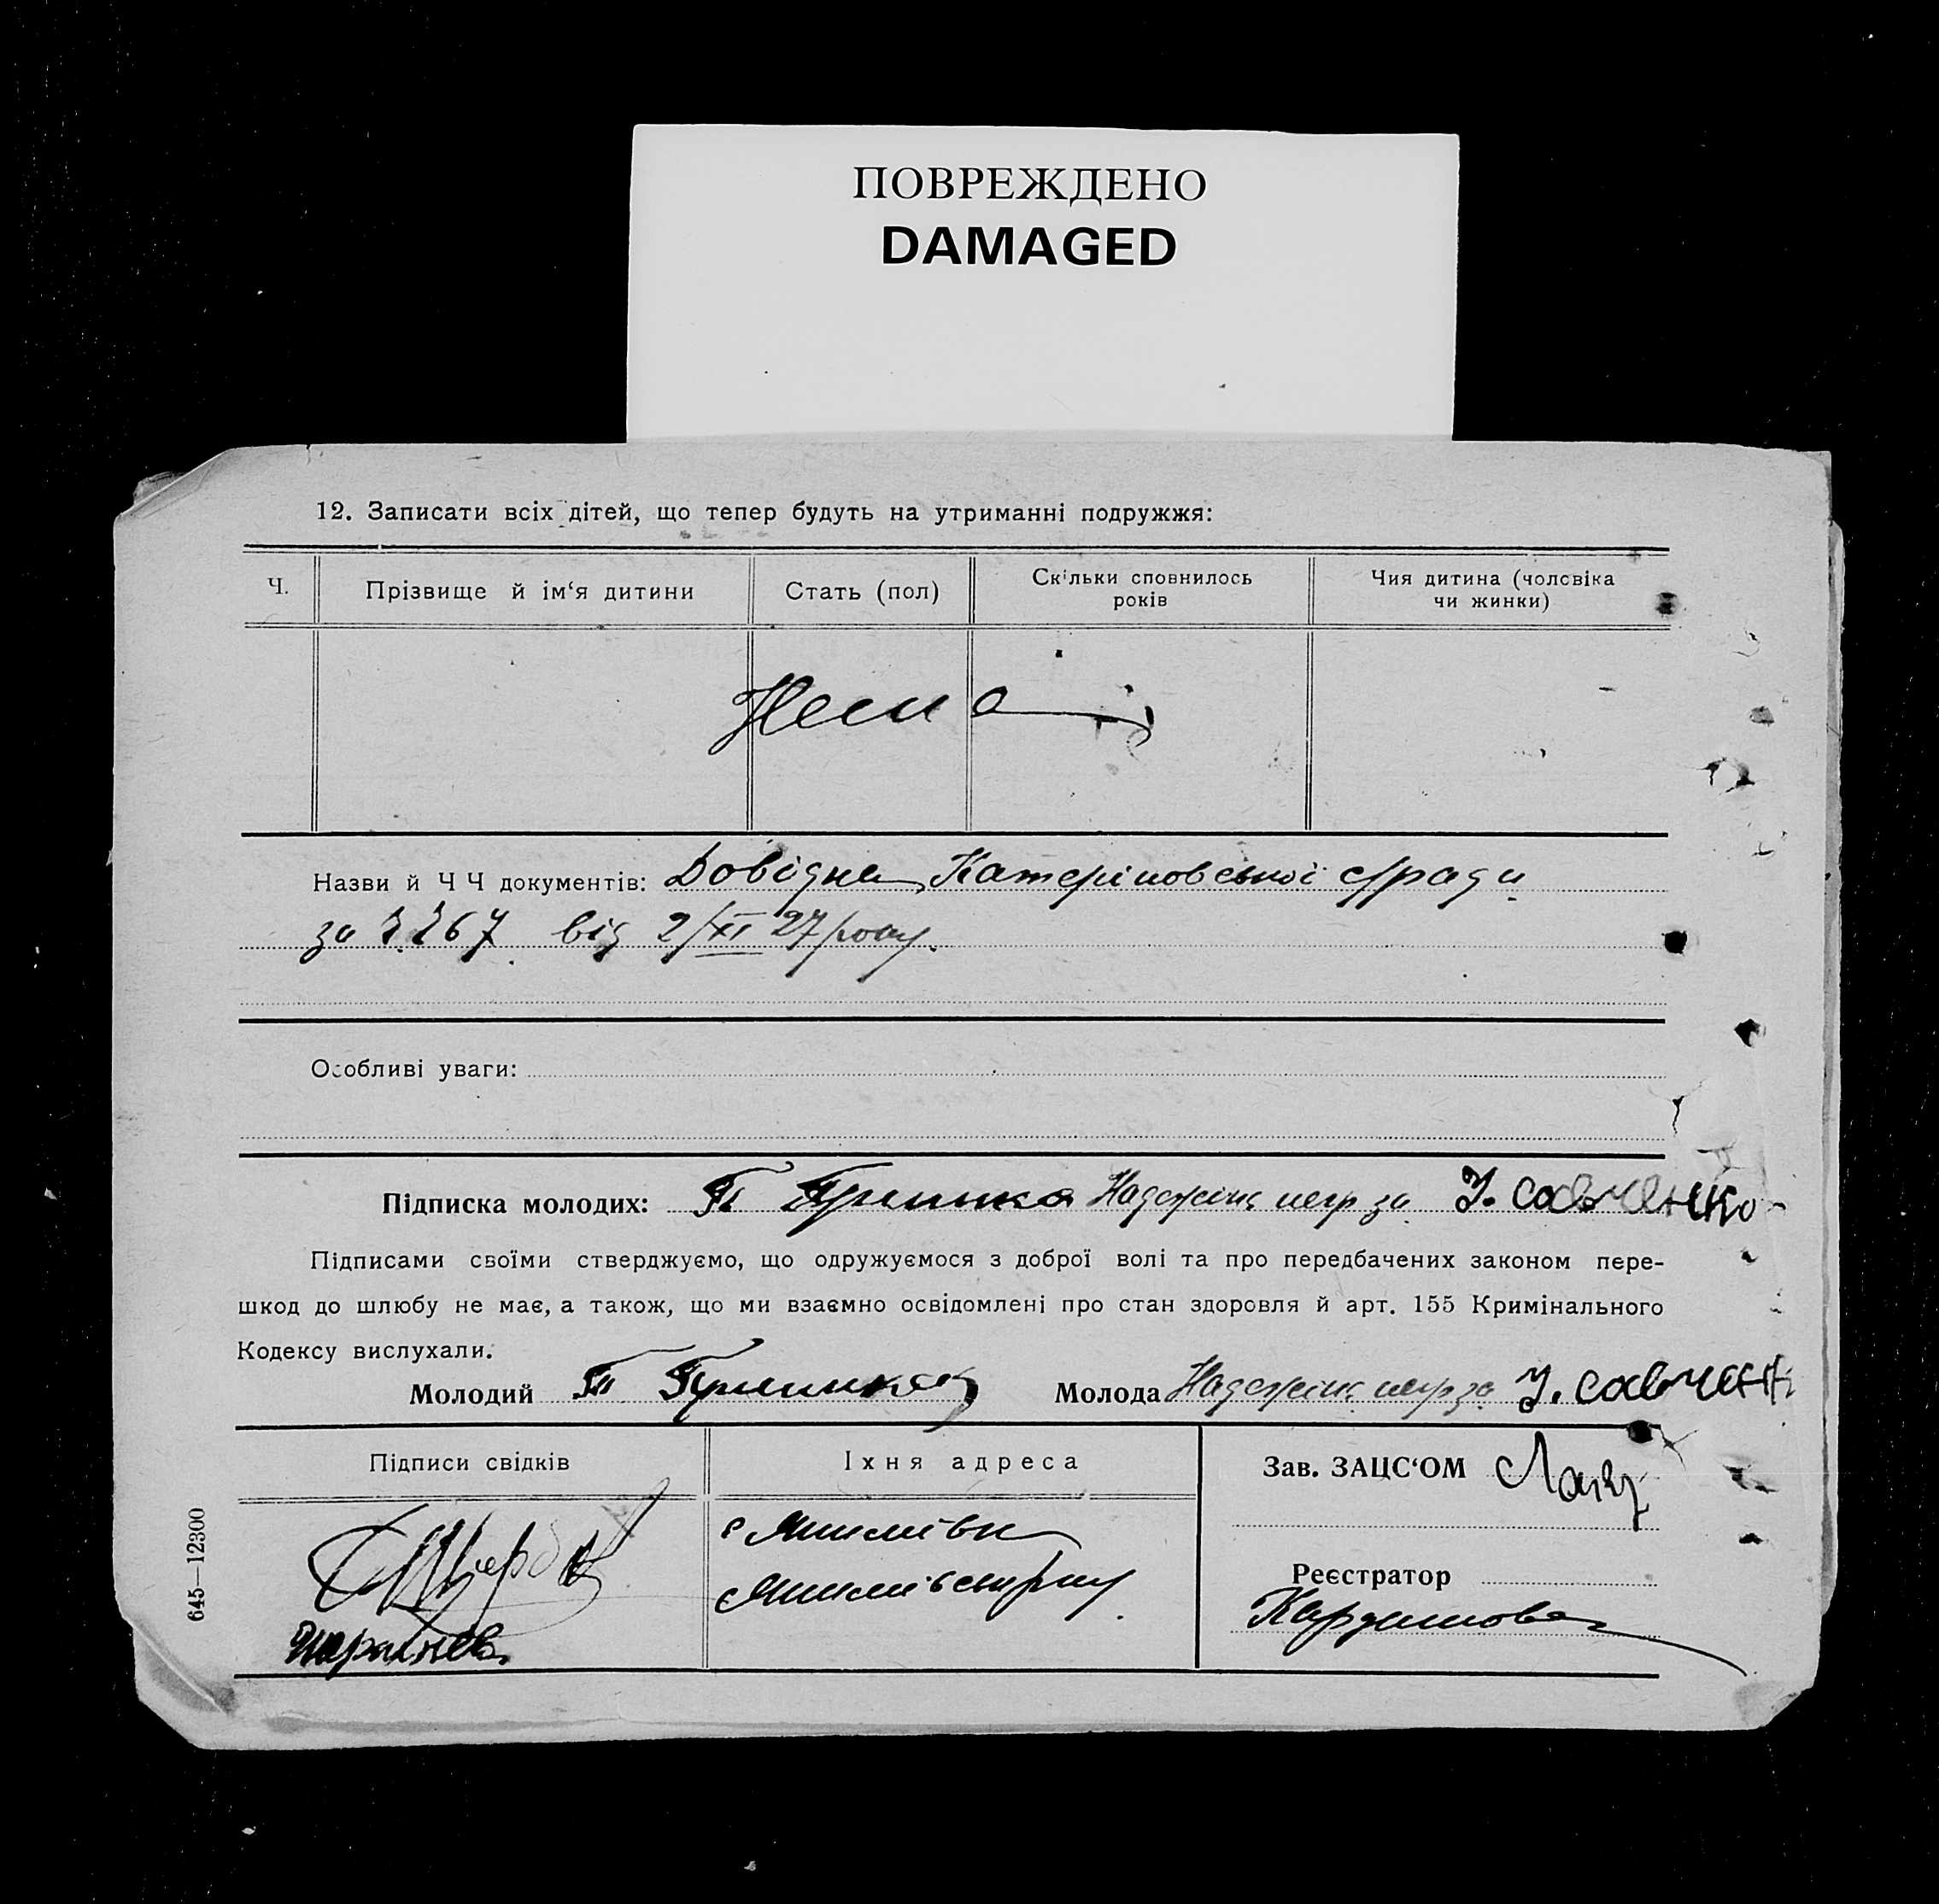 ПОВРЕЖДЕНО
DAMAGED
12. Записати всіх дітей, що тепер будуть на утриманні подружжя:
Ч. Прізвище й ім‘я дитини Стать (пол) Скільки сповнилось років Чия дитина (чоловіка чи жинки)
Нема
Назви й Ч Ч документів: Довідка Катеріновської с/ради
за 267 від 2/XI 27 року.
Особливі уваги:
Підписка молодих: неписьм за У. савченко
Підписами своїми стверджуємо, що одружуємося з доброї волі та про передбачених законом пере-
шкод до шлюбу не має, а також, що ми взаємно освідомлені про стан здоровля й арт. 155 Кримінального
Кодексу вислухали.
Молодий Молода У. савченк
Підписи свідків Їхня адреса Зав. ЗАЦС‘ОМ
Реєстратор
645—12300